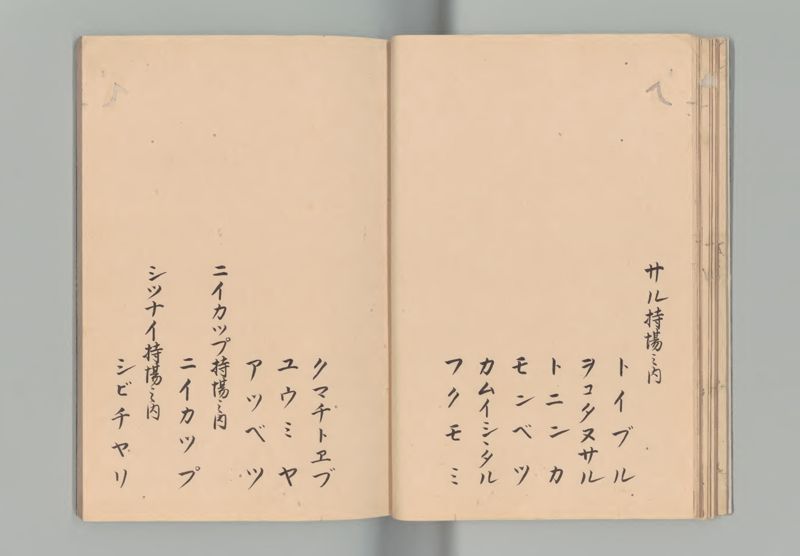 サル持場之内
トイブル
ヲコタヌサル
トニンカ
モンベツ
カムイシタル
フクモミ
クマチトヱブ
ユウミヤ
アツベツ
ニイカツプ持場之内
ニイカツプ
シツナイ持場之内
シビチヤリ